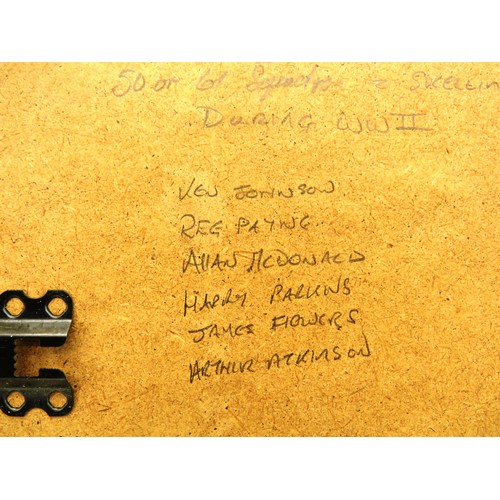 50 or 61 Squadron = Skellin
During WW II
Ken Johnson
Reg Payne
Allan McDonald
Harry Parkins
James Flowers
Arthur Atkinson